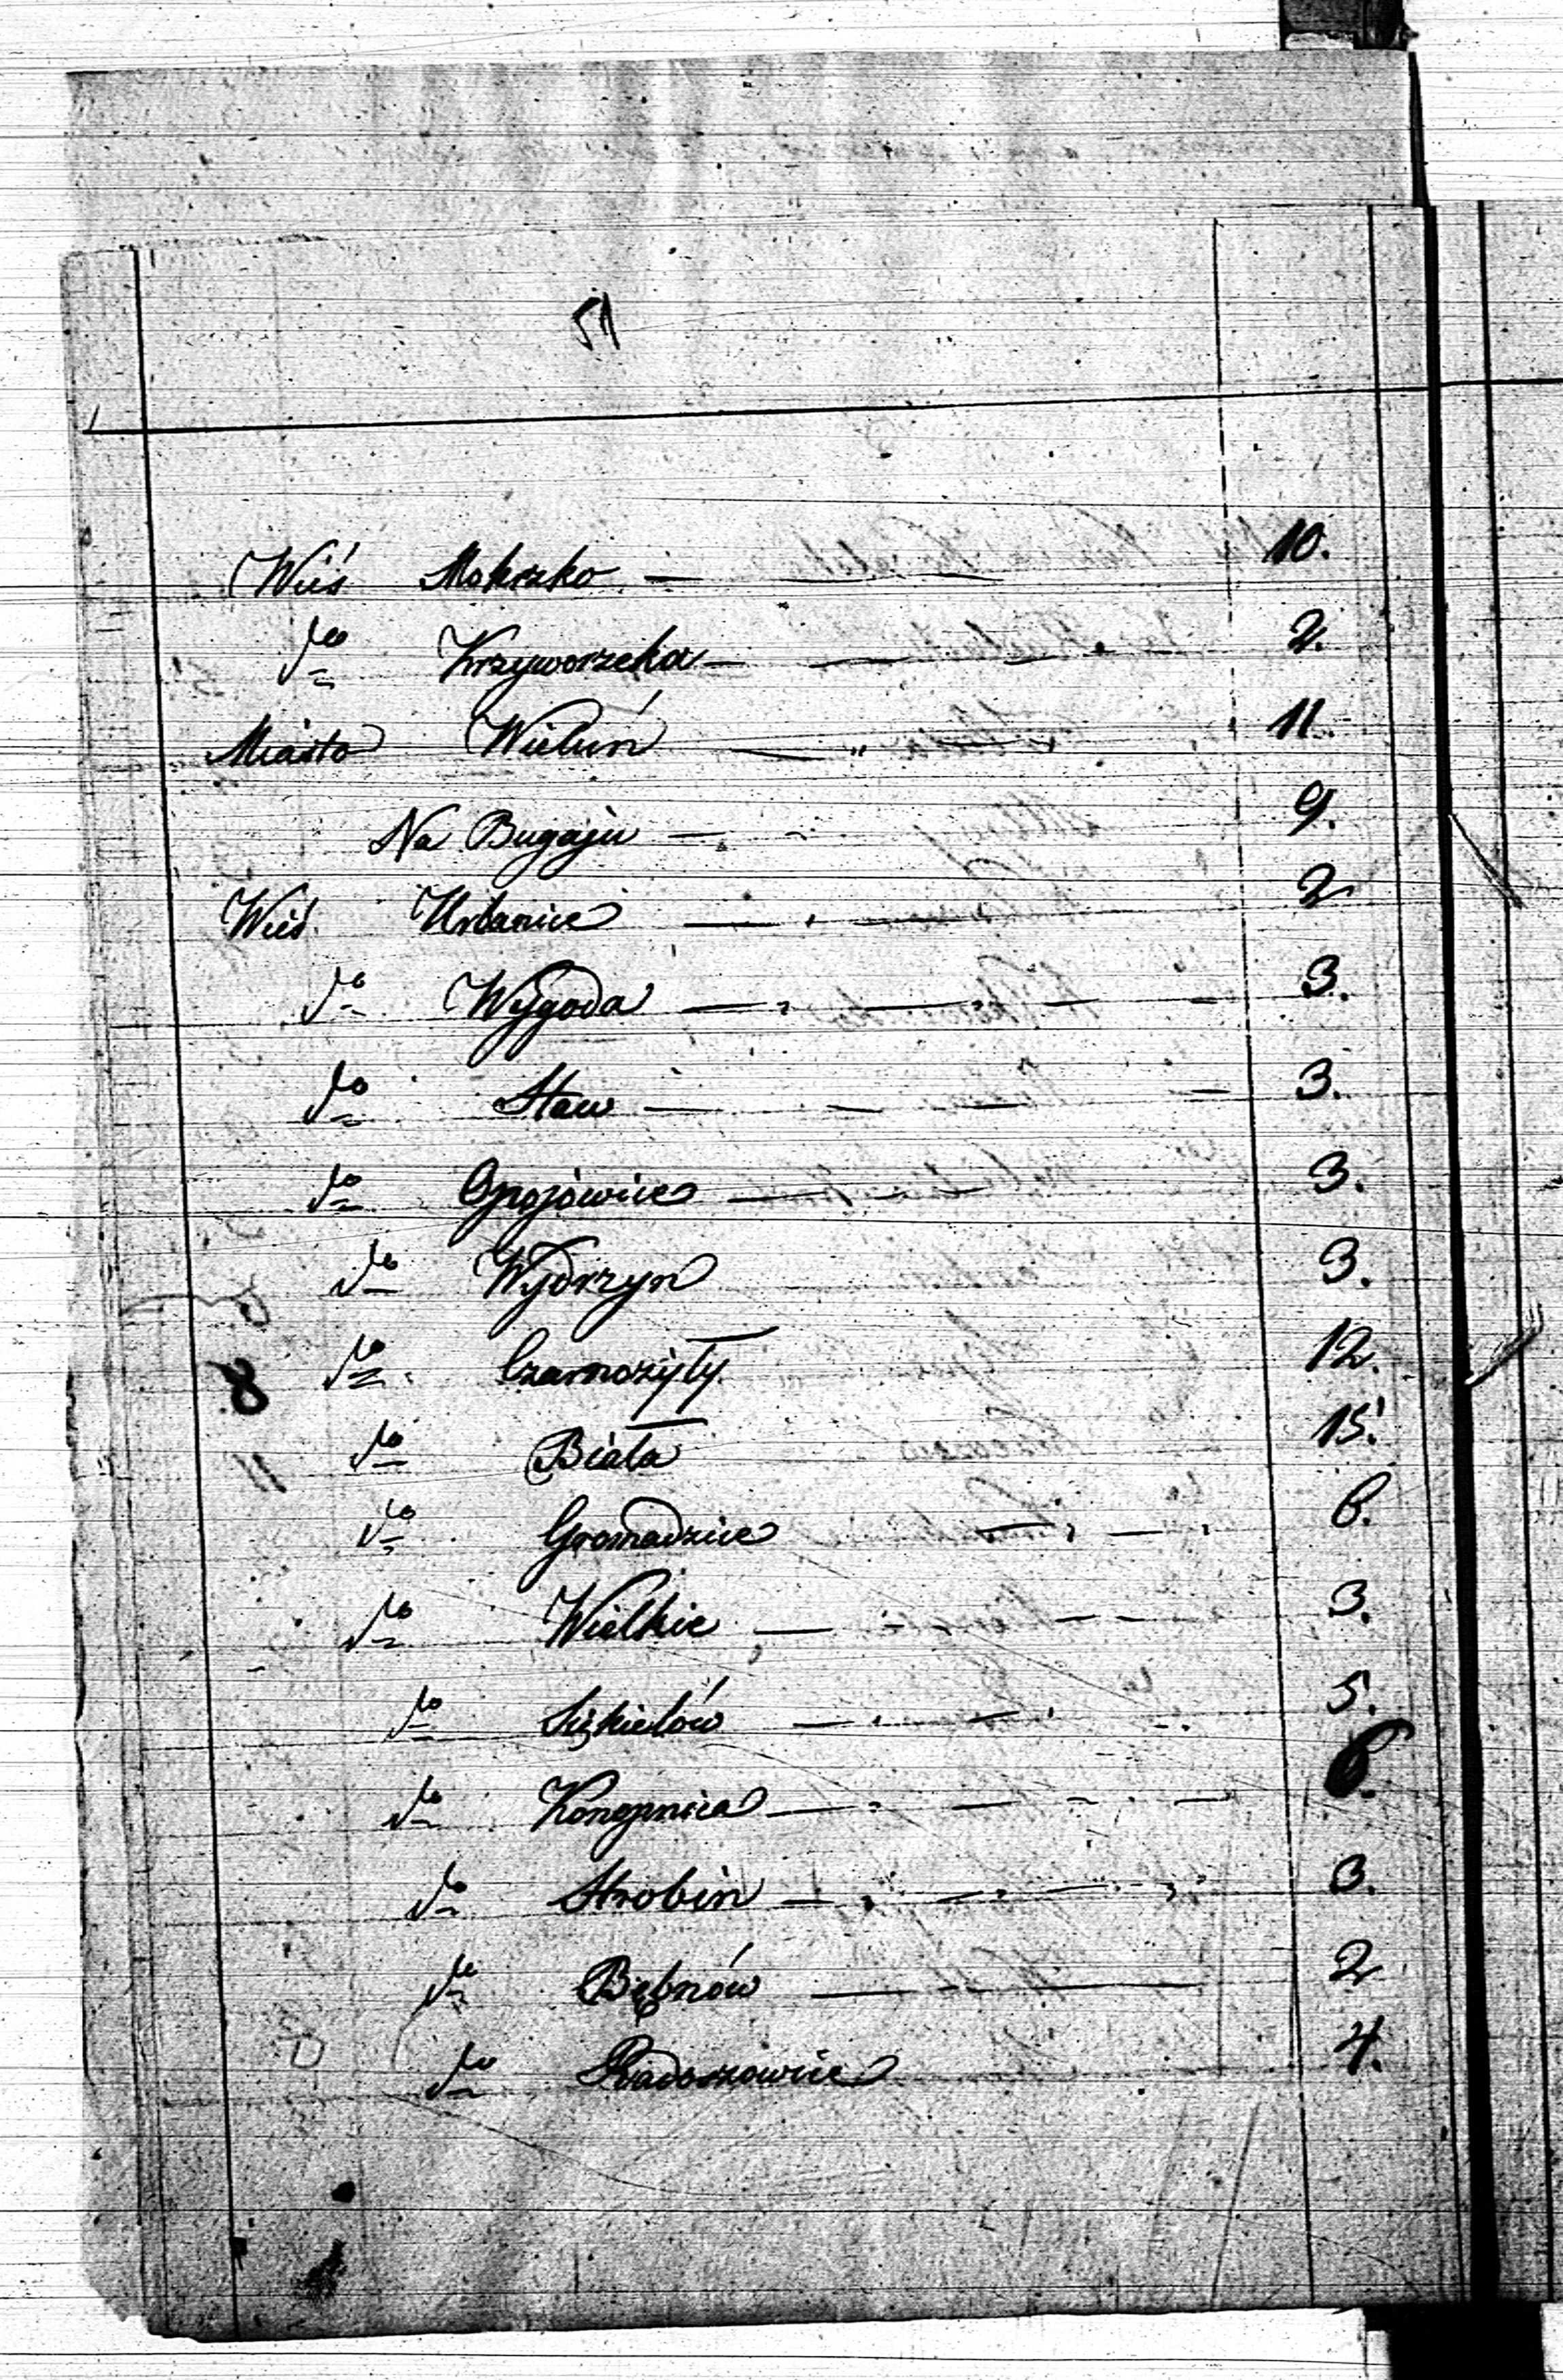 51
Wieś Mokrsko — — 10.
do Krzyworzeka — — 2.
Miasto Wieluń — " — 11.
Na Bugaju — 9.
Wieś Urbanice — — 2
do Wygoda — — — 3.
do Staw — — — 3.
do Opojowice — — 3.
do Wydrzyn 3.
do Czarnożyły 12.
do Biała 15.
do Gromadzice — — 6.
do Wielkie — — — 3.
do — — 5.
do Konopnica — — — 6.
do Strobin — — — 3.
do Bębnów — — 2
do Radoszowice 4.
8